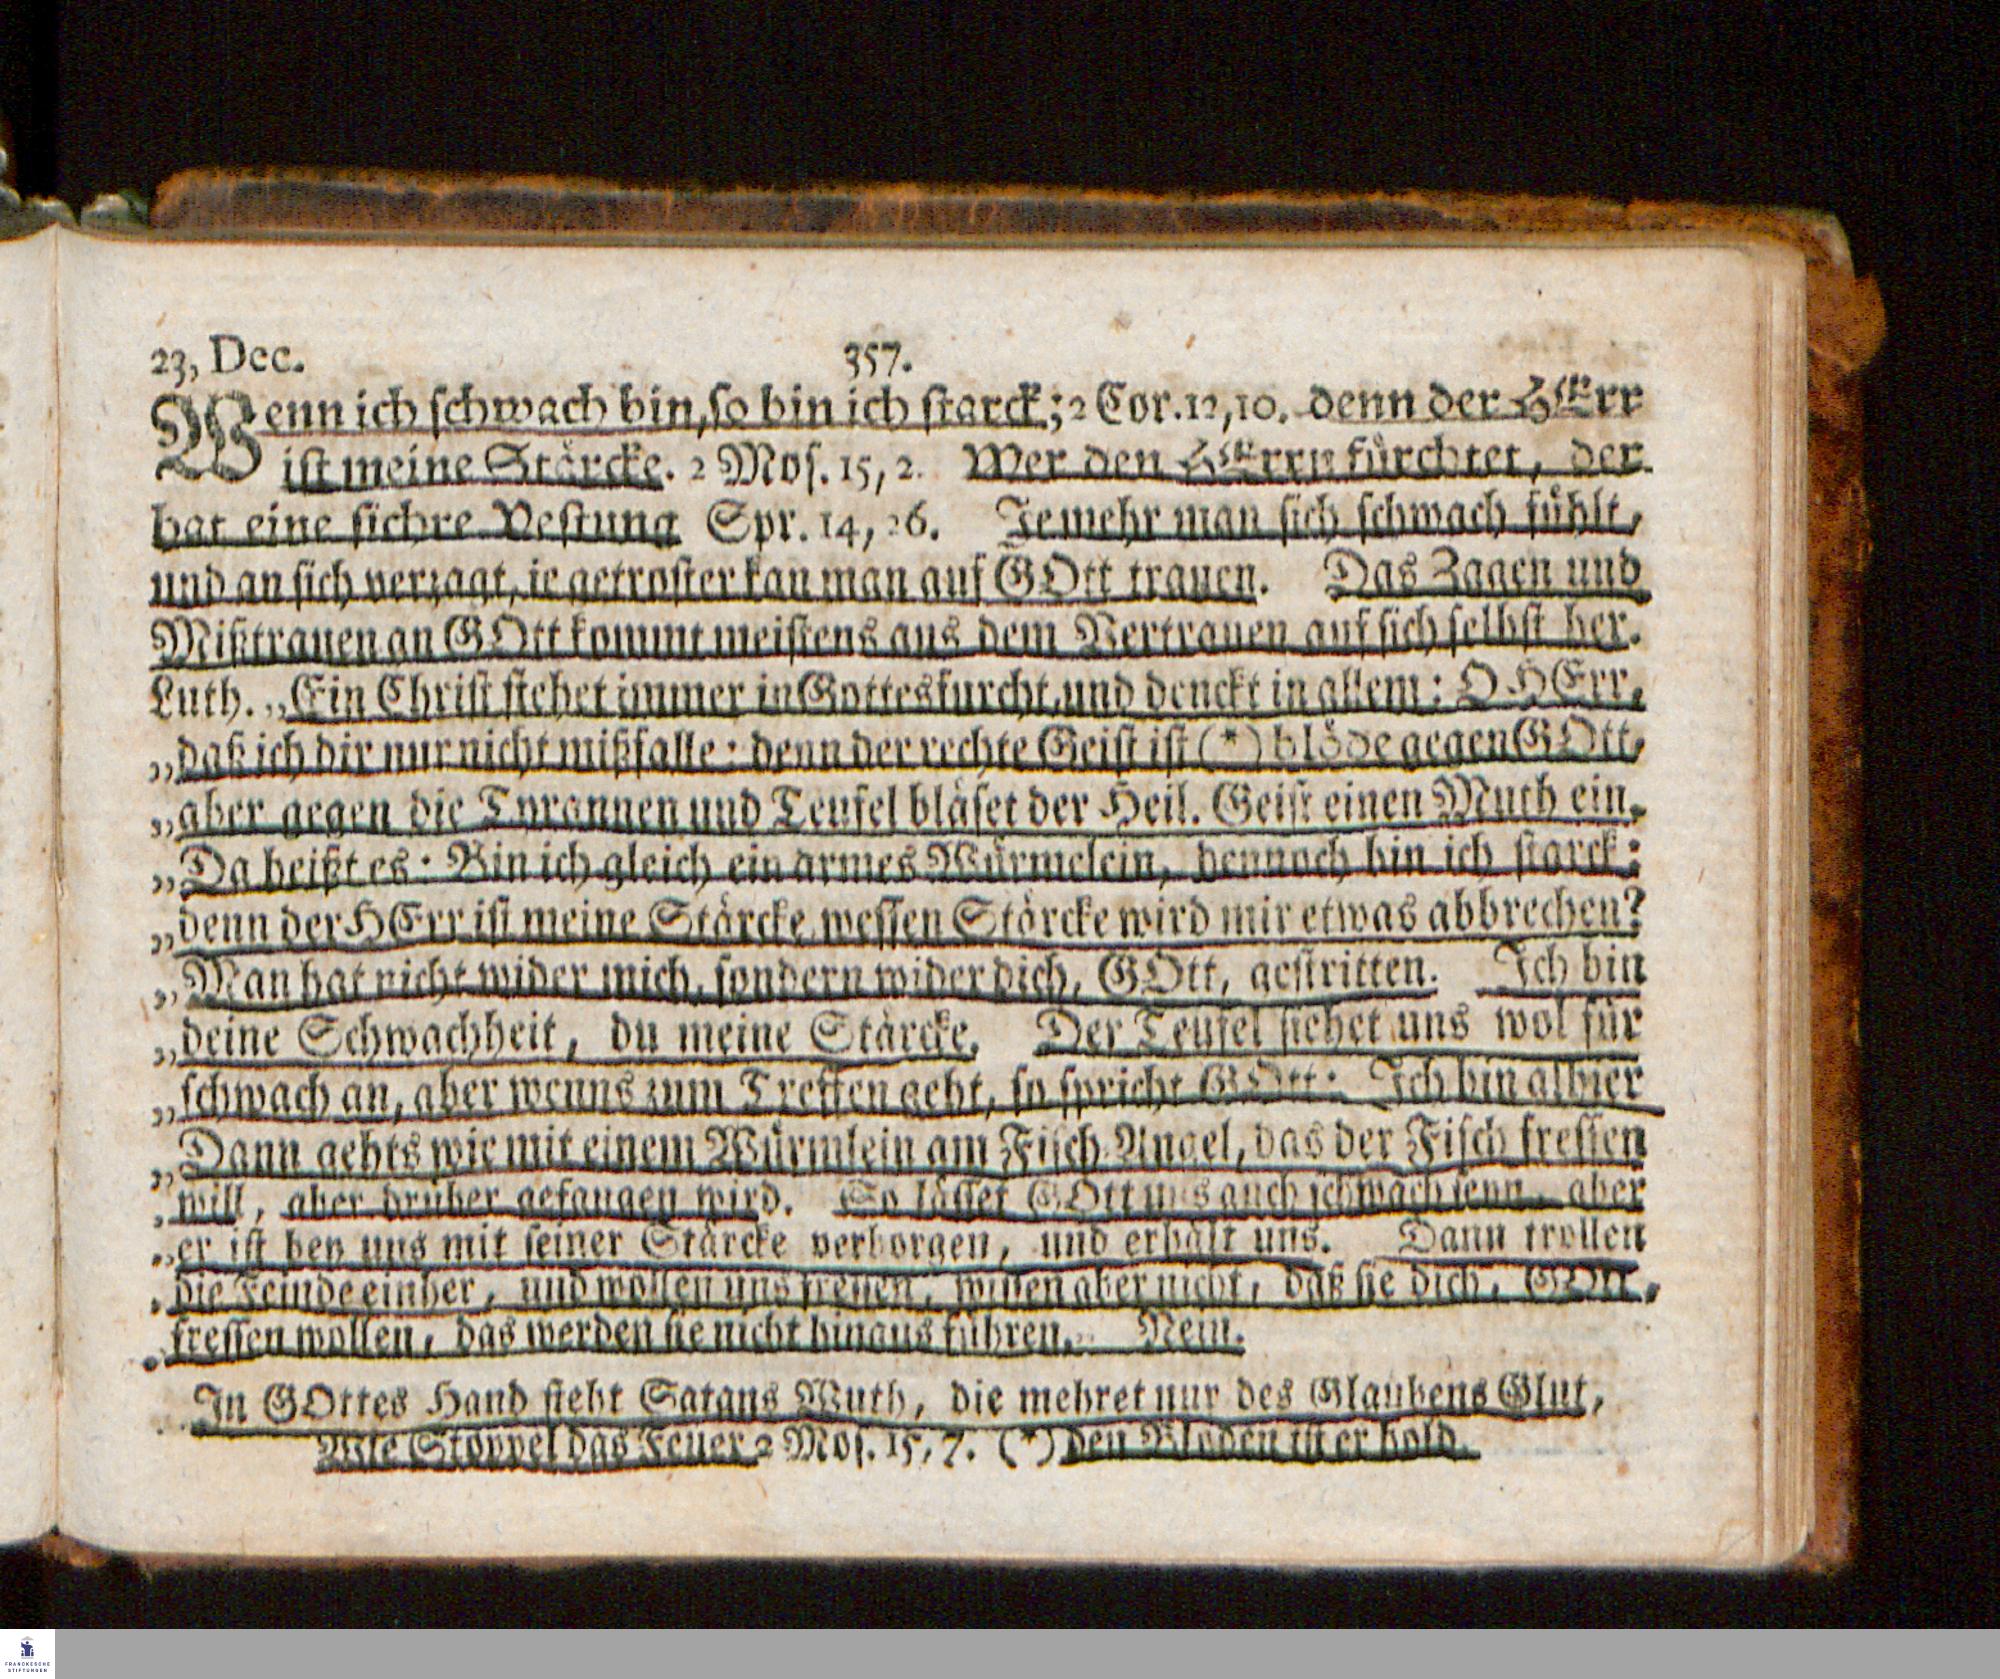 23, Dec. 357.
Wenn ich schwach bin, so bin ich starck; 2 Cor. 12, 10. denn der HErr
ist meine Stärcke. 2 Mos. 15, 2. Wer den HErrn fürchtet, der
hat eine sichre Vestung Spr. 14, 26. Je mehr man sich schwach fühlt,
und an sich verzagt, je getroster kan man auf GOtt trauen. Das Zagen und
Mißtrauen an GOtt kommt meistens aus dem Vertrauen auf sich selbst her.
Luth. „Ein Christ stehet immer in Gottesfurcht, und denckt in allem: O HErr,
„daß ich dir nur nicht mißfalle: denn der rechte Geist ist (*) blöde gegen GOtt,
„aber gegen die Tyrannen und Teufel bläset der Heil. Geist einen Muth ein.
„Da heißt es: Bin ich gleich ein armes Würmelein, dennoch bin ich starck:
„denn der HErr ist meine Stärcke, wessen Stärcke wird mir etwas abbrechen?
„Man hat nicht wider mich, sondern wider dich, GOtt, gestritten. Ich bin
„deine Schwachheit, du meine Stärcke. Der Teufel siehet uns wol für
„schwach an, aber wenns zum Treffen geht, so spricht GOtt: Ich bin alhier
„Dann gehts wie mit einem Würmlein am Fisch-Angel, das der Fisch fressen
„will, aber drüber gefangen wird. So lässet GOtt uns auch schwach seyn, aber
„er ist bey uns mit seiner Stärcke verborgen, und erhält uns. Dann trollen
„die Feinde einher, und wollen uns fressen, wissen aber nicht, daß sie dich, GOtt,
„fressen wollen, das werden sie nicht hinaus führen. „ Nein.
In GOttes Hand steht Satans Wuth, die mehret nur des Glaubens Glut,
Wie Stoppel das Feuer 2 Mos. 15, 7. (*) den Blöden ist er hold.
FRANCKESCHE
STIFTUNGEN